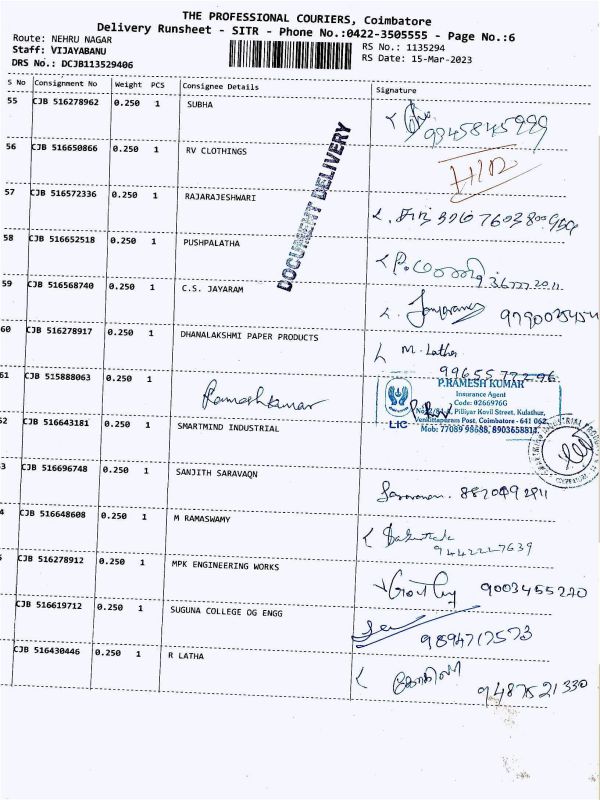 THE PROFESSIONAL COURIERS, Coimbatore
Delivery Runsheet - SITR - Phone No.:0422-3505555 - Page No.:6
Route: NEHRU NAGAR
Staff: VIJAYABANU
RS No.: 1135294
DRS No.: DCJB113529406
RS Date: 15-Mar-2023
S No Consignment No Weight PCS Consignee Details Signature
55 CJB 516278962 0.250 1 SUBHA
9845845999
56 CJB 516650866 0.250 1 RV CLOTHINGS
57 CJB 516572336 0.250 1 RAJARAJESHWARI
DOCUMENT DELIVERY
58 CJB 516652518 0.250 1 PUSHPALATHA
59 CJB 516568740 0.250 1 C.S. JAYARAM
60 CJB 516278917 0.250 1 DHANALAKSHMI PAPER PRODUCTS M. Latha
9965577296
61 CJB 515888063 0.250 1 Rameshkumar
P.RAMESH KUMAR
Insurance Agent
Code: 0266976G
Pilliyar Kovil Street, Kulathur,
Post, Coimbatore - 641 062
LIC Mob: 77089 98688, 8903658814
2 CJB 516643181 0.250 1 SMARTMIND INDUSTRIAL
3 CJB 516696748 0.250 1 SANJITH SARAVAQN
Saravanan.
4 CJB 516648608 0.250 1 M RAMASWAMY
9442227639
CJB 516278912 0.250 1 MPK ENGINEERING WORKS
9003455270
CJB 516619712 0.250 1 SUGUNA COLLEGE OG ENGG
9894717573
CJB 516430446 0.250 1 R LATHA
9487521330